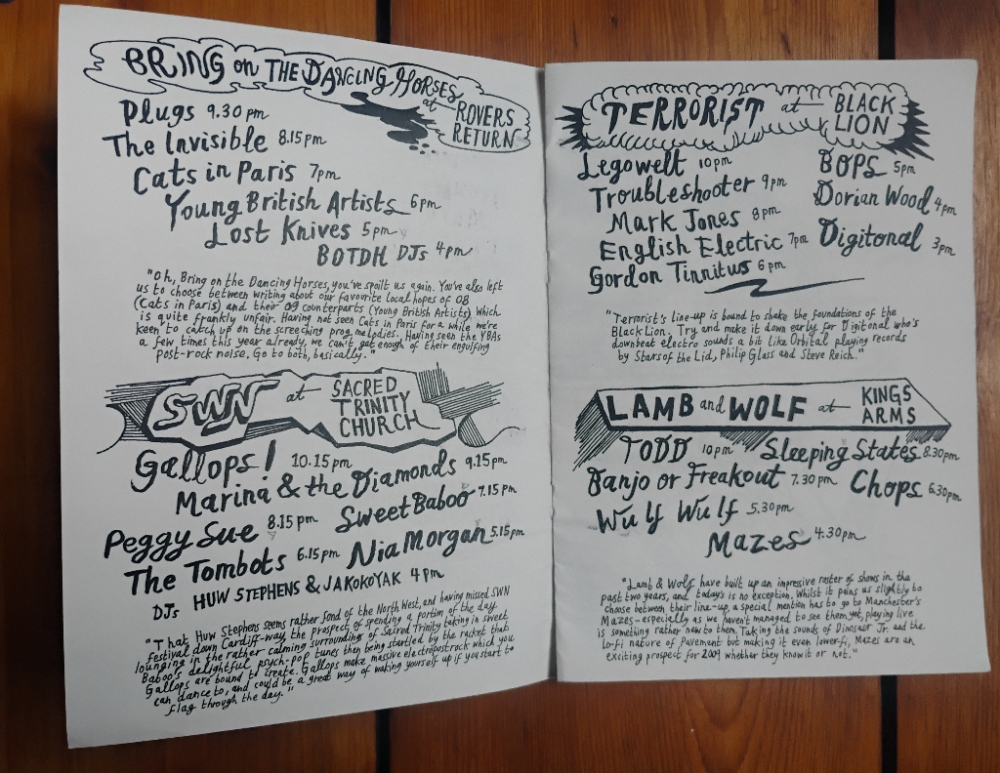 BRING on THE DANCING HORSES
at ROVERS
RETURN
Plugs 9.30pm
The Invisible 8.15pm
Cats in Paris 7pm
Young British Artists 6pm
Lost Knives 5pm
BOTDH DJs 4pm
"Oh, Bring on the Dancing Horses, you've spoilt us again. You've also left
us to choose between writing about our favourite local hopes of 08
(Cats in Paris) and their 09 counterparts (Young British Artists) which
is quite frankly unfair. Having not seen Cats in Paris for a while we're
keen to catch up on the screeching prog melodies. Having seen the YBAs
a few times this year already, we can't get enough of their engulfing
post-rock noise. Go to both, basically."
SWN at SACRED
TRINITY
CHURCH
Gallops! 10.15pm
Marina & the Diamonds 9.15pm
Peggy Sue 8.15pm Sweet Baboo 7.15pm
The Tombots 6.15pm Nia Morgan 5.15pm
DJs HUW STEPHENS & JAKOKOYAK 4pm
"That Huw Stephens seems rather fond of the North West, and having missed SWN
festival down Cardiff-way the prospect of spending a portion of the day
lounging in the rather calming surroundings of Sacred Trinity taking in Sweet
Baboo's delightful psych-pop tunes then being startled by the racket that
Gallops are bound to create. Gallops make massive electropostrock which you
can dance to, and could be a great way of waking yourself up if you start to
flag through the day."
TERRORIST at BLACK
LION
Legowelt 10pm
Troubleshooter 9pm
Mark Jones 8pm
English Electric 7pm
Gordon Tinnitus 6pm
BOPS 5pm
Dorian Wood 4pm
Digitonal 3pm
"Terrorist's line-up is bound to shake the foundations of the
Black Lion. Try and make it down early for Digitonal who's
downbeat electro sounds a bit like Orbital playing records
by Stars of the Lid, Philip Glass and Steve Reich."
LAMB and WOLF at KINGS
ARMS
TODD 10pm Sleeping States 8.30pm
Banjo or Freakout 7.30pm Chops 6.30pm
Wulf Wulf 5.30pm
Mazes 4.30pm
"Lamb & Wolf have built up an impressive roster of shows in the
past two years, and today's is no exception. Whilst it pains us slightly to
choose between their line-up, a special mention has to go to Manchester's
Mazes - especially as we haven't managed to see them yet, playing live
is something rather new to them. Taking the sounds of Dinosaur Jr. and the
lo-fi nature of Pavement but making it even lower-fi, Mazes are an
exciting prospect for 2009 whether they know it or not."